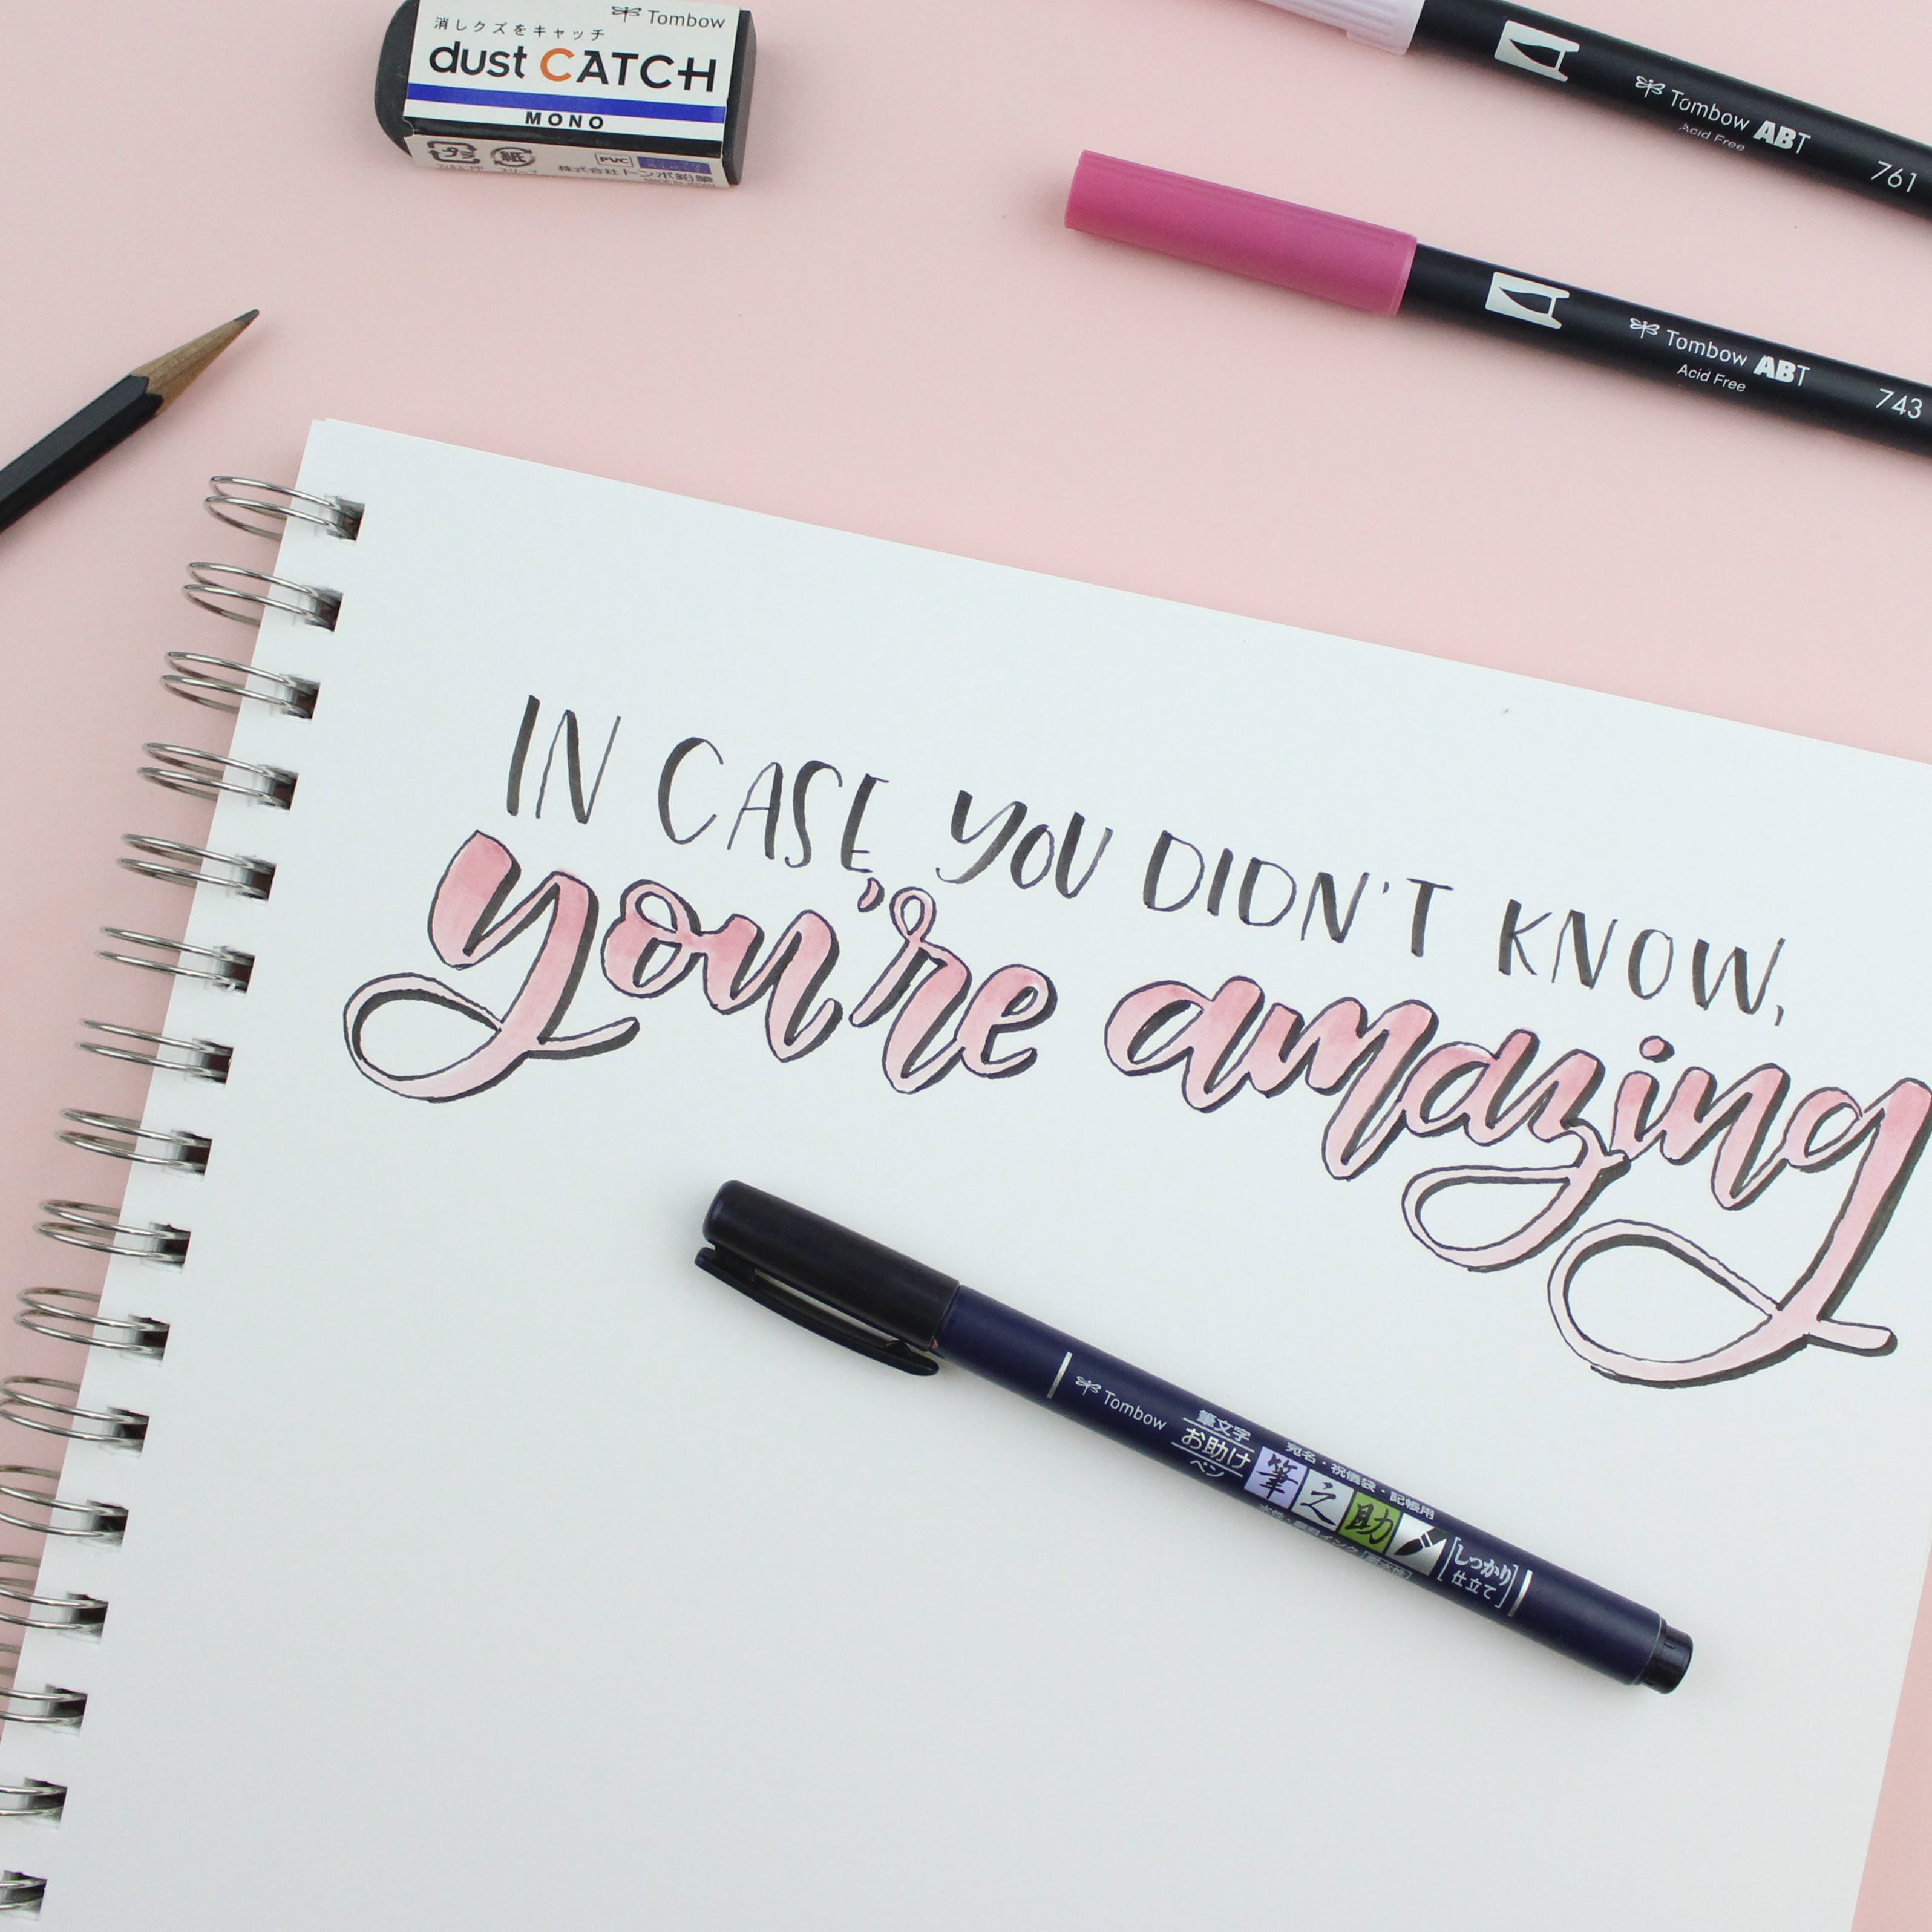 Tombow
消しクズをキャッチ
dust CATCH
MONO
プラ
紙
PVC
株式会社トンボ鉛筆
Tombow ABT
Acid Free
761
Tombow ABT
Acid Free
743
IN CASE YOU DIDN'T KNOW,
you're amazing
Tombow
筆文字
お助け
ペン
宛名・祝儀袋・記帳用
筆之助
しっかり
仕立て